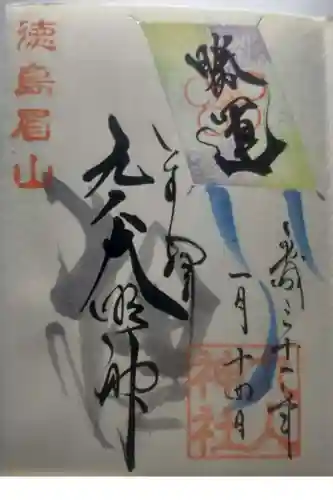 勝運
平成三十一年
一月十四日
九八大明神
徳島眉山
天神社